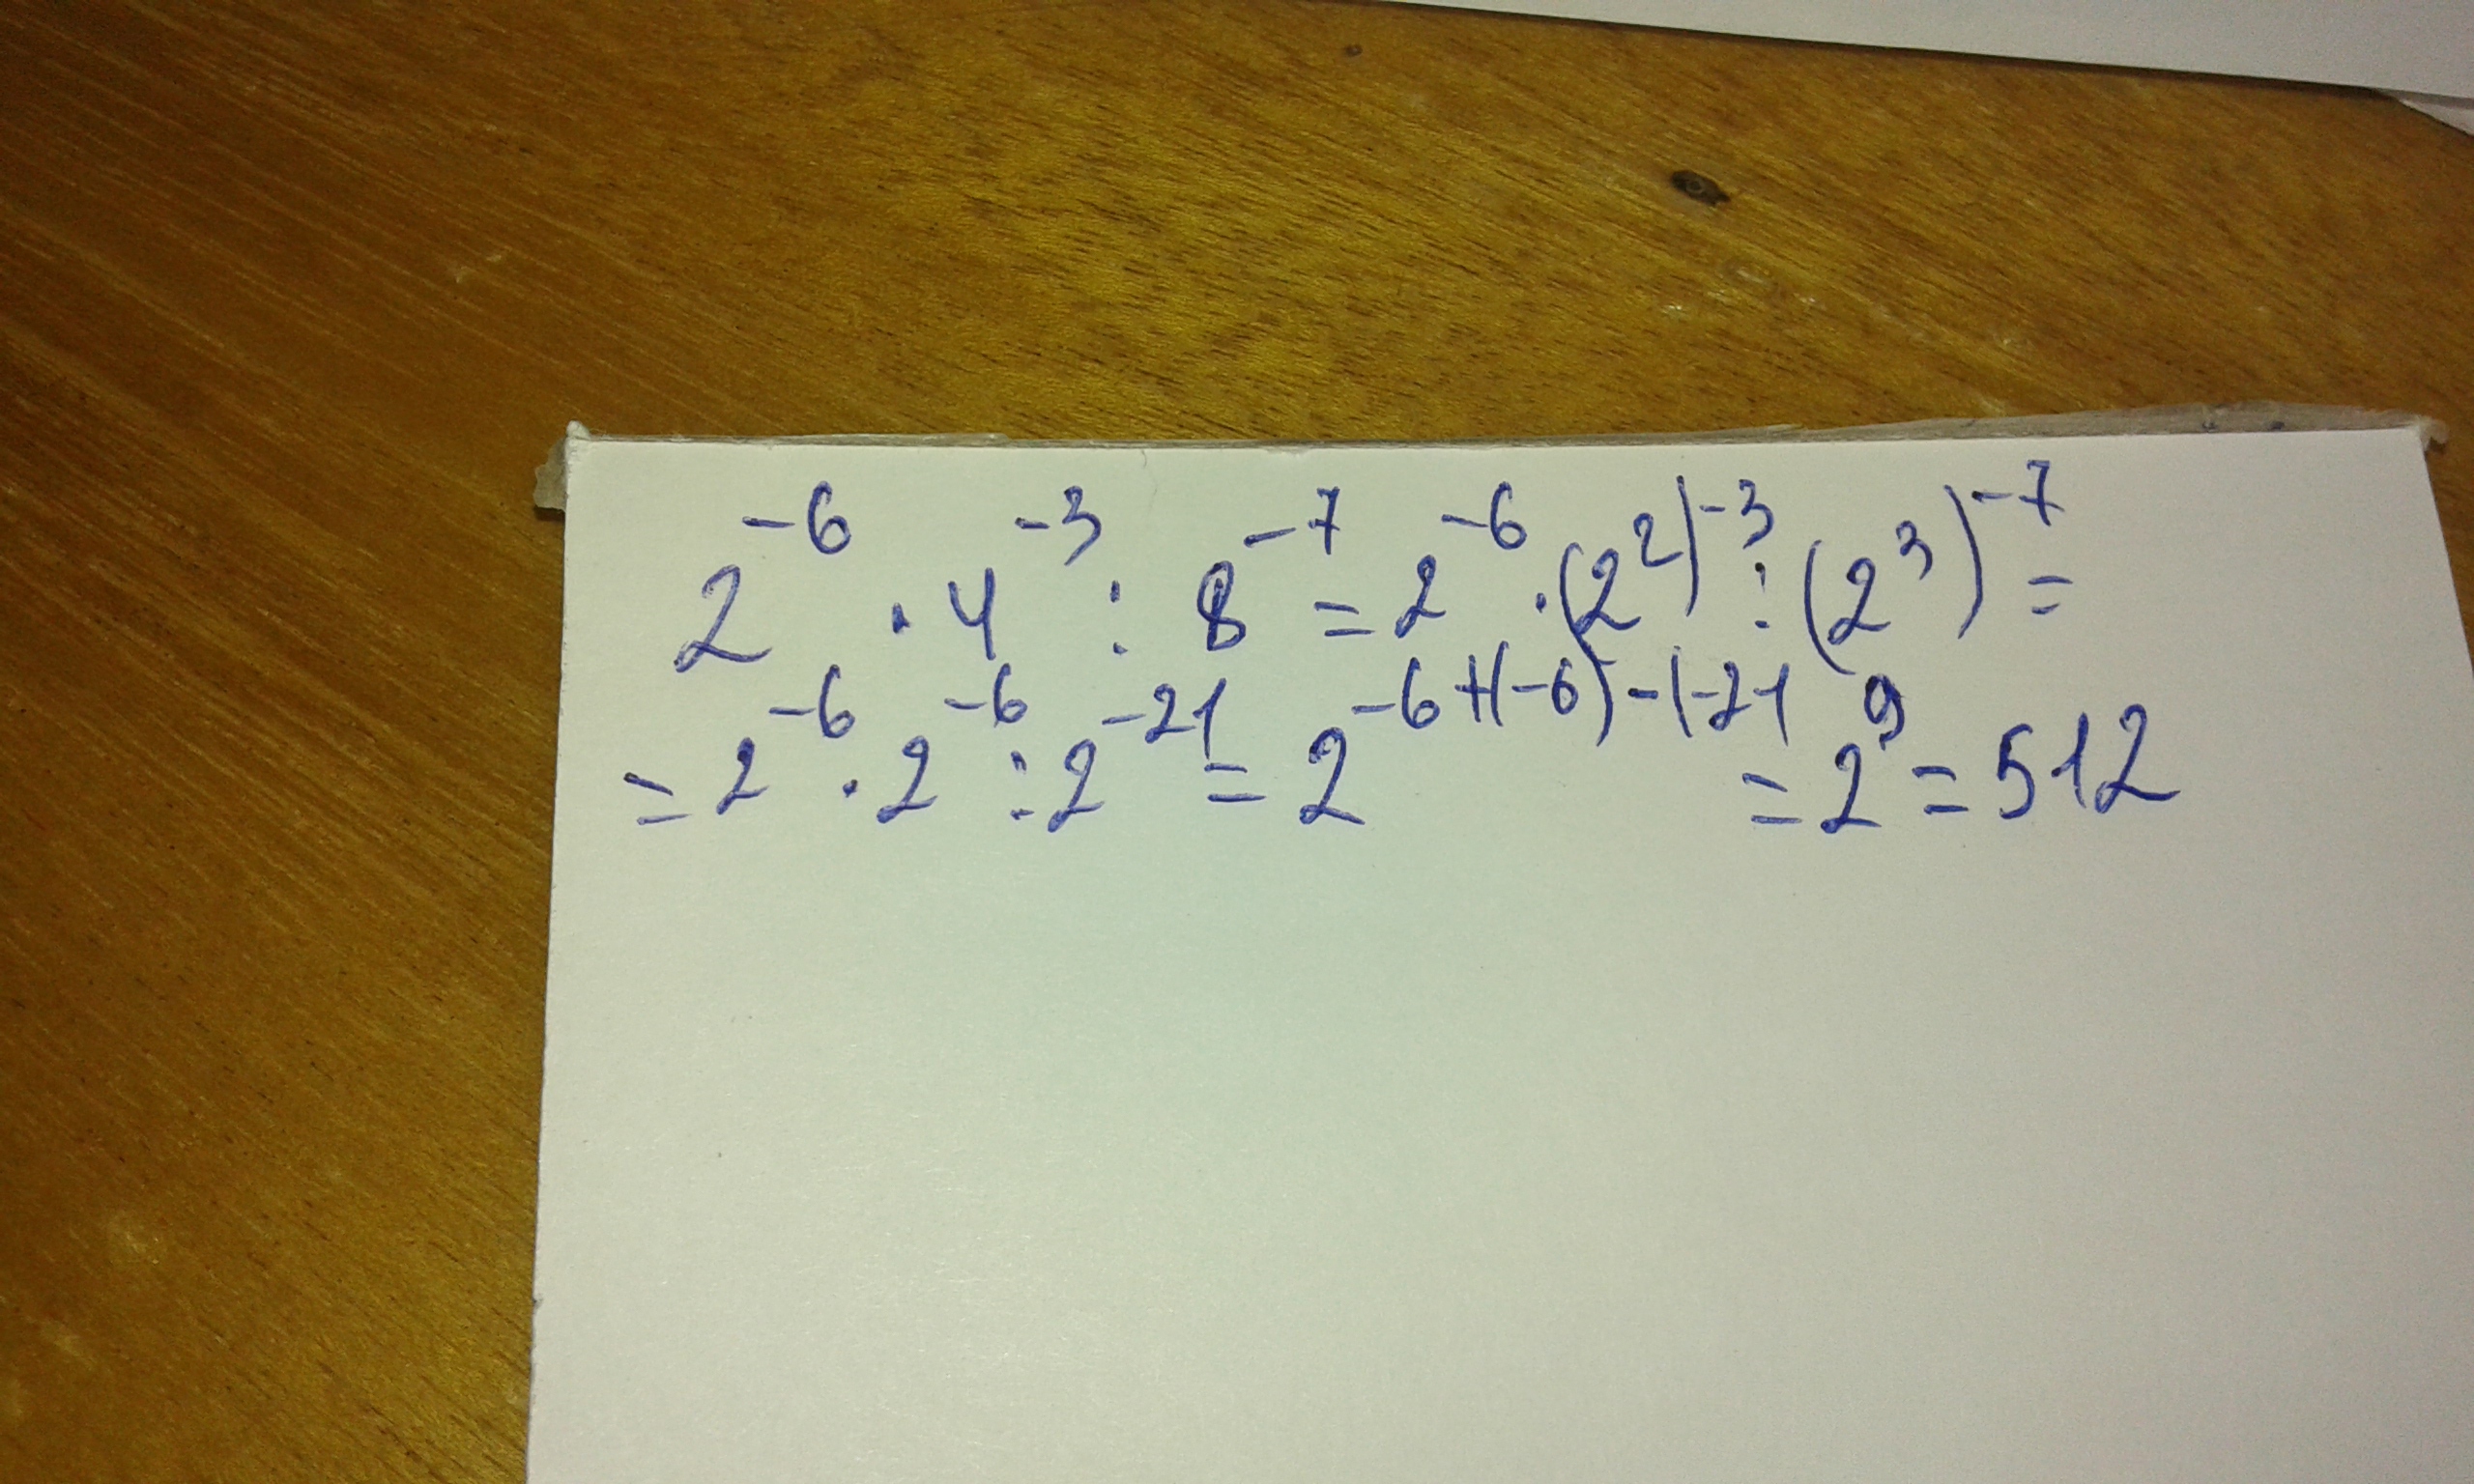 2⁻⁶ · 4⁻³ : 8⁻⁷ = 2⁻⁶ · (2²)⁻³ : (2³)⁻⁷ =
= 2⁻⁶ · 2⁻⁶ : 2⁻²¹ = 2⁻⁶⁺⁽⁻⁶⁾⁻⁽⁻²¹ = 2⁹ = 512